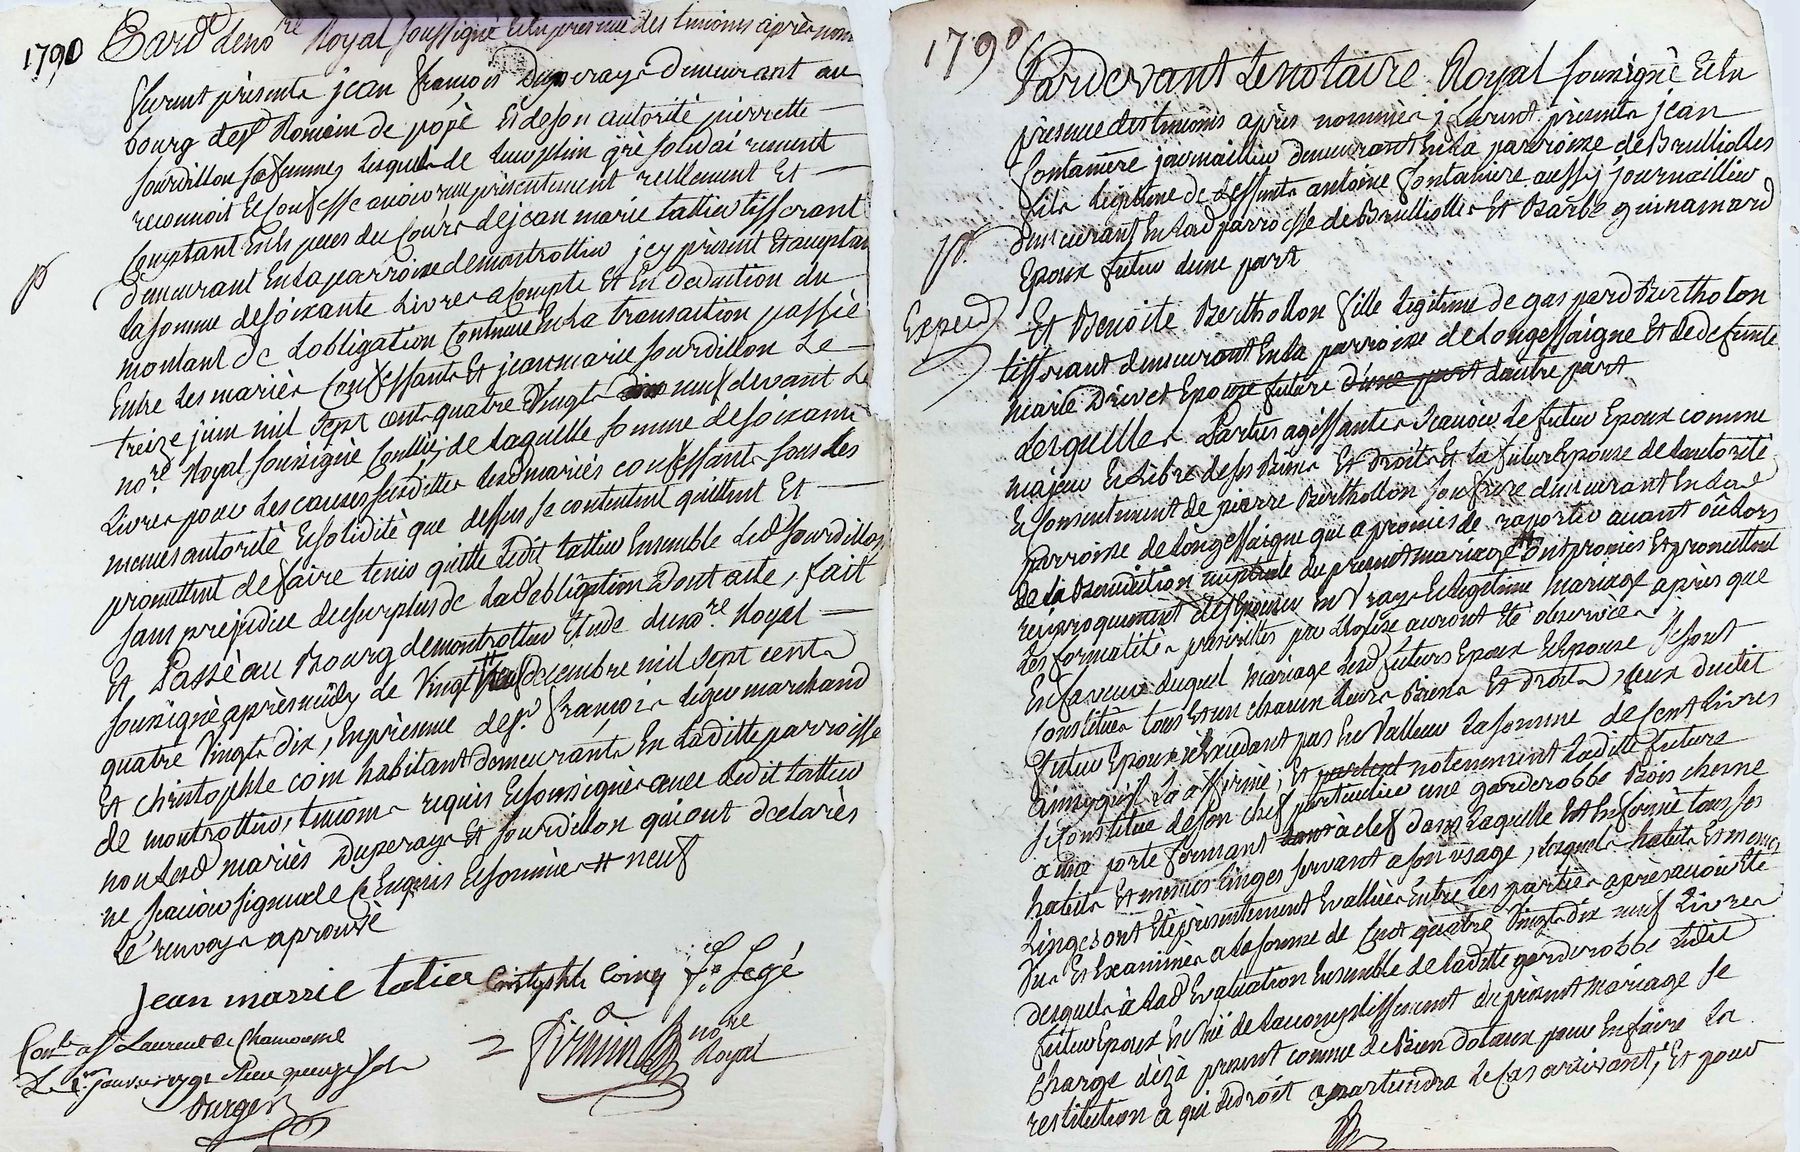 1790
Pard.t le no.re Royal soussigné Et En presence des temoins après nom
furent présents jean françois Duperay Demeurant au
bourg de S.t Romain de popé Et de son autorité pierrette
sourdillon sa femme, Lesquels de Leur plein gré solidairement
reconnoit Et Confesse avoir reçu présentement réellement Et
Comptant En Especes du Cours de jean marie tattieu tisserant
Demeurant En La parroisse de montrottier jcy présent Et acceptan
La somme de soixante Livres a Compte Et En deduction du
montant de Lobligation Contenue En La transaction passée
Entre Les mariés Confessants Et jean marie sourdillon Le
treize juin mil sept cent quatre Vingt neuf devant Le
no.re Royal soussigné Contllé, de Laquelle somme de soixante
Livres pour Les causes susdittes Lesd mariés confessants sous Les
memes autorité Et solidité que dessus se contentent quittent Et
promettent de faire tenir quitte Ledit tattieu Ensemble Led Sourdillon
sans prejudice du surplus de La d obligation Dont acte, fait
Et Passé au Bourg de montrottier Etude du no.re Royal
soussigné après midy Le Vingt decembre mil sept cents
quatre Vingts dix, En présence de S.r françois Legeu marchand
Et christophle coin habitant demeurants En Laditte parroisse
de montrottier, temoins requis Et soussignés avec Ledit tattieu
non Lesd mariés Duperay Et sourdillon qui ont declarés
ne scavoir signer de ce Enquis Et sommés # neuf
Le renvoy aprouvé
jean marrie tatier Cristophle Coing f.s Legé
Firmin no.re Royal
Con.lé a S.t Laurent de Chamousset
Le 1.er janvier 1791 Reçu quinze sols
Burger
1790
Pardevant Le notaire Royal soussigné Et En
présence des temoins après nommés ; furent présents jean
fontaniere journaillieu demeurant En La parroisse de Brulliolles
fils Legitime de deffunts antoine fontaniere aussy journaillieu
demeurant En Lad parroisse de Brulliolles Et Barbe guinamard
Epoux futur d'une part
Exped
Et Benoite Berthollon fille Legitime de gaspard Bertholon
tisserant demeurant En La parroisse de Longessaigne Et de defunte
marie Drivet Epouse future d'une part dautre part
Lesquelles Parties agissantes scavoir Le futur Epoux comme
majeur Et Libre de ses Biens Et droits Et La future Epouse de Lautorité
Et Consentement de pierre Berthollon son frere demeurant En Lad
parroisse de Longessaigne qui a promis de raporter avant ou Lors
de La Benediction nuptiale du present mariage # ont promis Et promettent
reciproquement de s'Epouser En vray Et Legitime mariage après que
Les formalités prescrittes par LEglise auront Eté observées
En faveur duquel mariage Lesd futurs Epoux Et Epouse se sont
Constitués tous Et un chacun Leurs Biens Et droits, ceux dudit
futur Epoux n'Excedant pas En Valleur La somme de Cent Livres
ainsy quil La affirmé ; Et notenment Laditte future
se Constitue de son chef particulier une garderobbe Bois cherne
a une porte fermant a clef dans Laquelle Est Enfermé tous ses
habits Et menus Linges servant a son usage, Lesquels habits Et menus
Linges ont Eté présentement Evallués Entre Les parties après avoir Eté
Vus Et Examinés a La somme de Cent quatre Vingts dix neuf Livres
desquels a Lad Evaluation Ensemble de Laditte garderobbe Ledit
futur Epoux En vue de Laccomplissement du présent mariage se
charge dèzà present comme de Bien dotaux pour En faire La
restitution a qui de droit apartiendra Le Cas arrivant ; Et pour